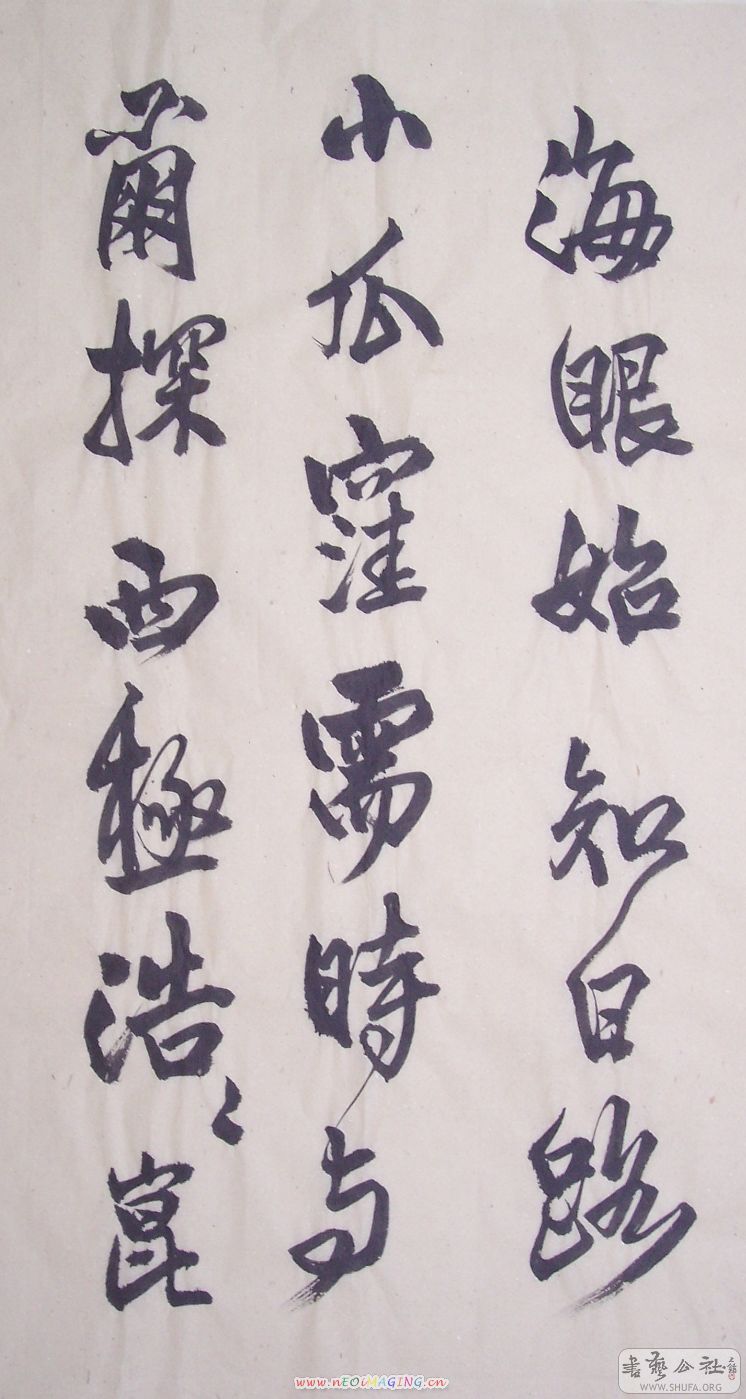 海眼始知日路
小瓜窪需時与
爾探西極浩々崑
www.nEOiMAGING.cn
書藝公社
WWW.SHUFA.ORG